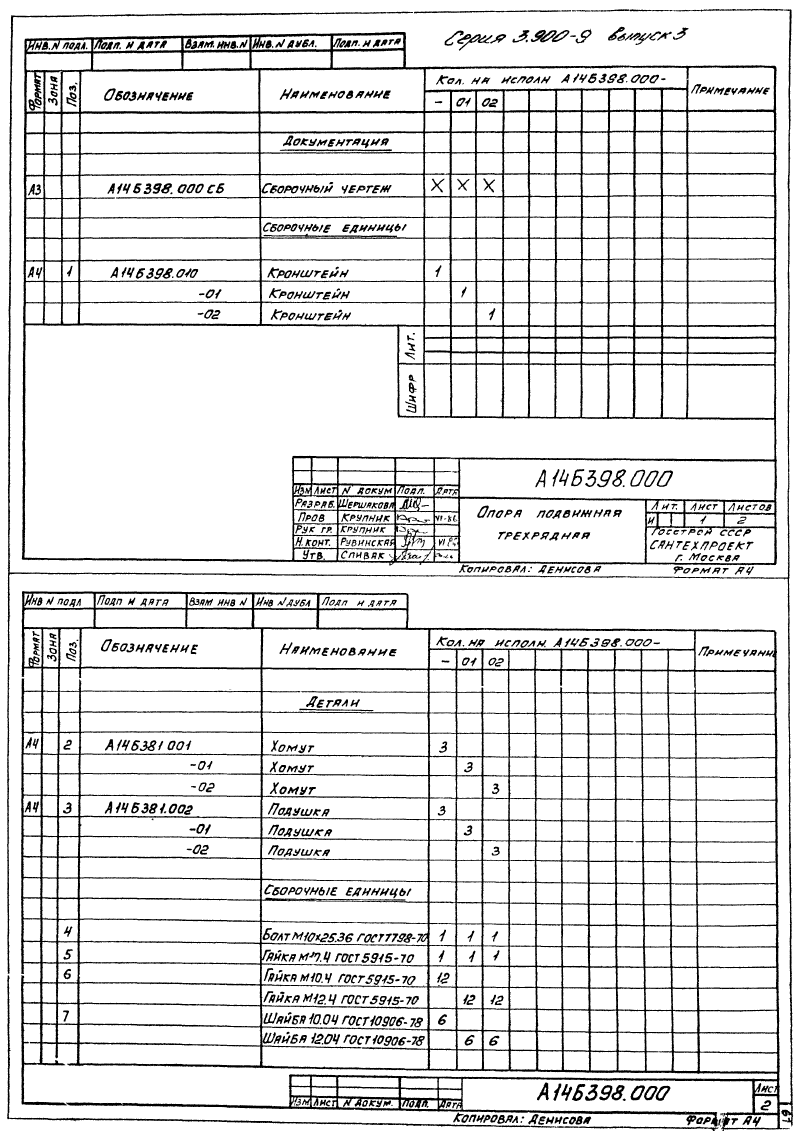 Серия 3.900-9 выпуск 3
Инв. N подл. Подп. и дата Взам. инв. N Инв. N дубл. Подп. и дата
Формат Зона Поз. Обозначение Наименование Кол. на исполн А14Б398.000- Примечание
- 01 02
Документация
А3 А14Б398.000 СБ Сборочный чертеж X X X
Сборочные единицы
А4 1 А14Б398.010 Кронштейн 1
-01 Кронштейн 1
-02 Кронштейн 1
Лит.
Шифр
А14Б398.000
Изм Лист N докум Подп. Дата
Разраб. Шершакова
Пров Крупник
Рук гр. Крупник
Н.конт. Рувинская
Утв. Спивак
Опора подвижная
трехрядная
Лит. Лист Листов
И 1 2
Госстрой СССР
Сантехпроект
г. Москва
Копировал: Денисова Формат А4
Инв N подл Подп и дата Взам инв N Инв N дубл Подп и дата
Формат Зона Поз. Обозначение Наименование Кол. на исполн. А14Б398.000- Примечание
- 01 02
Детали
А4 2 А14Б381.001 Хомут 3
-01 Хомут 3
-02 Хомут 3
А4 3 А14Б381.002 Подушка 3
-01 Подушка 3
-02 Подушка 3
Сборочные единицы
4 Болт М10×25.36 ГОСТ 7798-70 1 1 1
5 Гайка ГОСТ 5915-70 1 1 1
6 Гайка М10.4 ГОСТ 5915-70 12
Гайка М12.4 ГОСТ 5915-70 12 12
7 Шайба 10.04 ГОСТ 10906-78 6
Шайба 12.04 ГОСТ 10906-78 6 6
Изм Лист N докум. Подп. Дата
А14Б398.000
Лист
2
Копировал: Денисова Формат А4